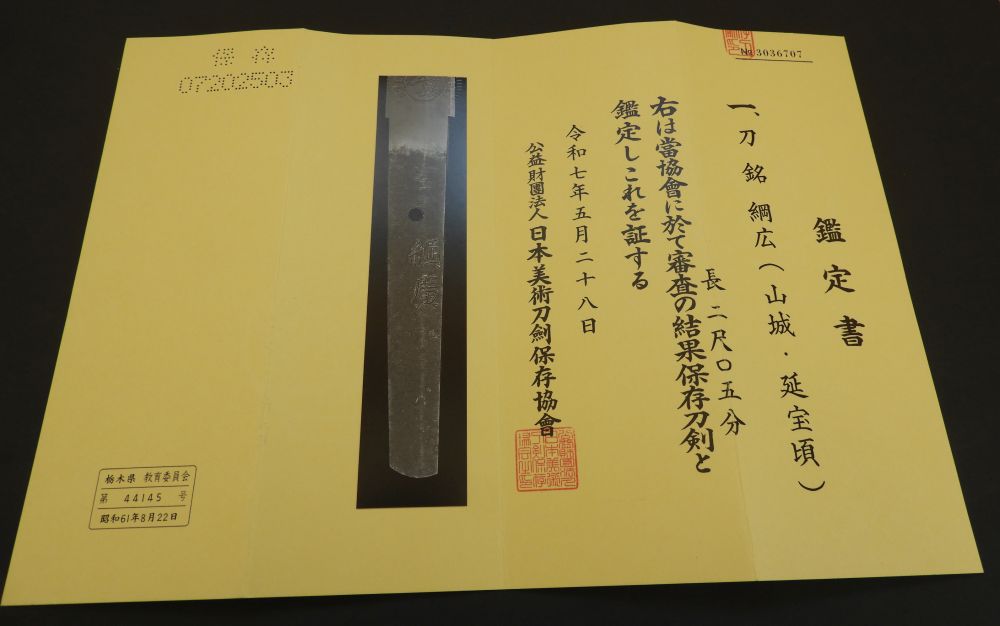 № 3036707
鑑定書
一、刀 銘 綱広(山城・延宝頃)
長 二尺〇五分
右は當協會に於て審査の結果保存刀剣と
鑑定しこれを証する
令和七年五月二十八日
公益財團法人 日本美術刀劍保存協會
綱廣
保存
07202503
栃木県 教育委員会
第 44145 号
昭和61年8月22日